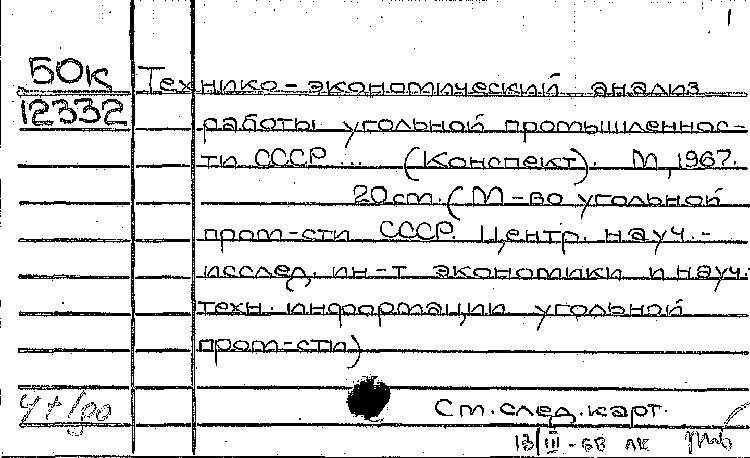 1
БОК Технико-экономический анализ
12332 работы угольной промышленнос-
ти СССР ... (Конспект). М, 1967.
20см. (М-во угольной
пром-сти СССР. Центр. науч.-
исслед. ин-т экономики и науч.
техн. информации угольной
пром-сти)
См. след. карт.
13/III-68 ЛК